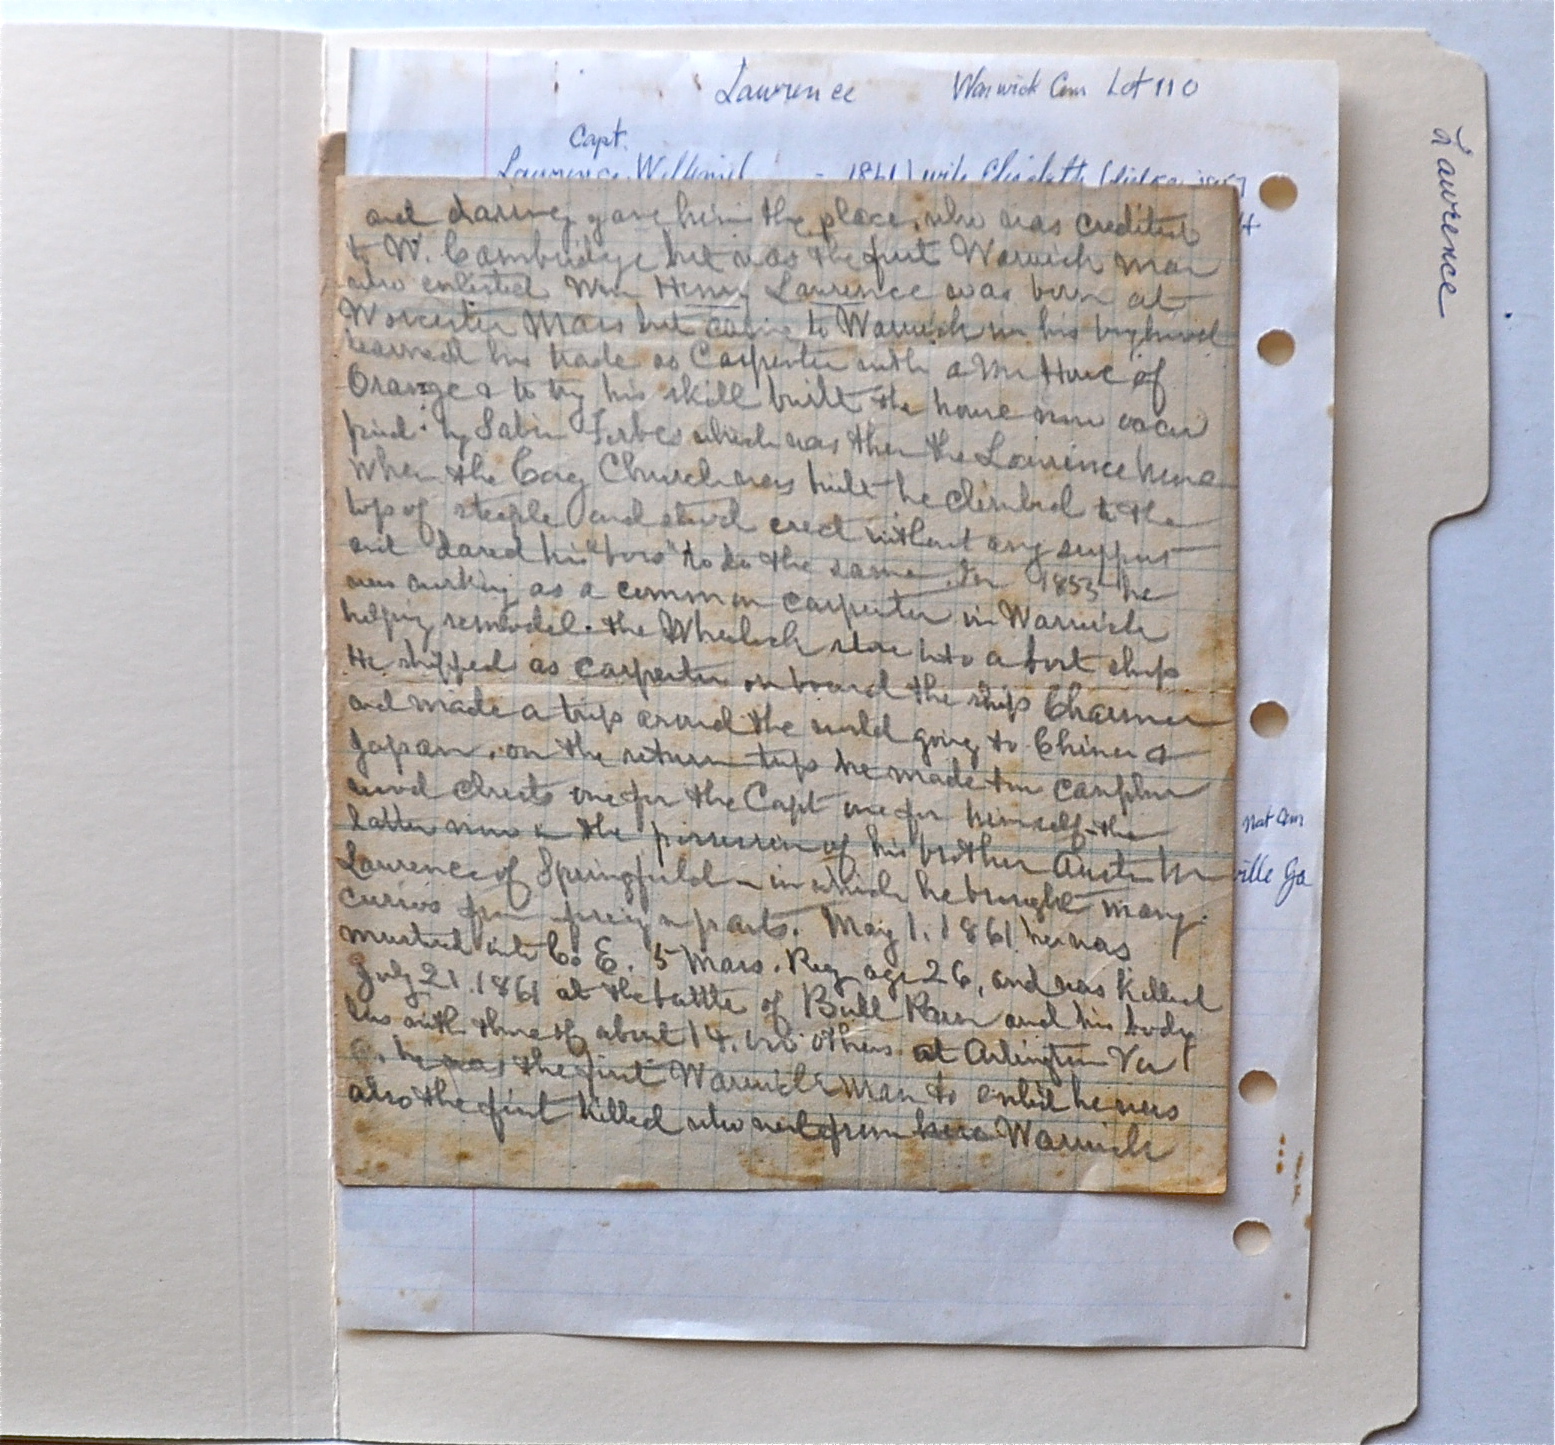 Lawrence Warwick Cem Lot 110
Capt.
Lawrence, 1861) wife Elizabeth
and daring gave him the place, who was credited
to W. Cambridge but was the first Warwick man
who enlisted Wm Henry Lawrence was born at
Worcester Mass but came to Warwick in his boyhood
learned his trade as Carpenter with a Mr Howe of
Orange & to try his skill built the house now occu
pied by Sabin Forbes which was then the Lawrence home
When the Cong Church was built he climbed to the
top of steeple and stood erect without any support
and dared his "boss" to do the same. In 1853 he
was working as a common carpenter in Warwick
helping remodel the Wheelock store into a boot shop
He shipped as carpenter on board the ship Charmer
and made a trip around the world going to China &
Japan, on the return trip he made two camphor
wood chests one for the Capt one for himself the
latter now in the possession of his brother Austin
Lawrence of Springfield in which he brought many
curios from foreign parts. May 1, 1861 he was
mustered into Co E. 5 Mass. Reg age 26, and was killed
July 21. 1861 at the battle of Bull Run and his body
lies with those of about others at Arlington Va
he was the first Warwick man to enlist he was
also the first killed who went from here Warwick
Nat Cem
ville Ga
Lawrence